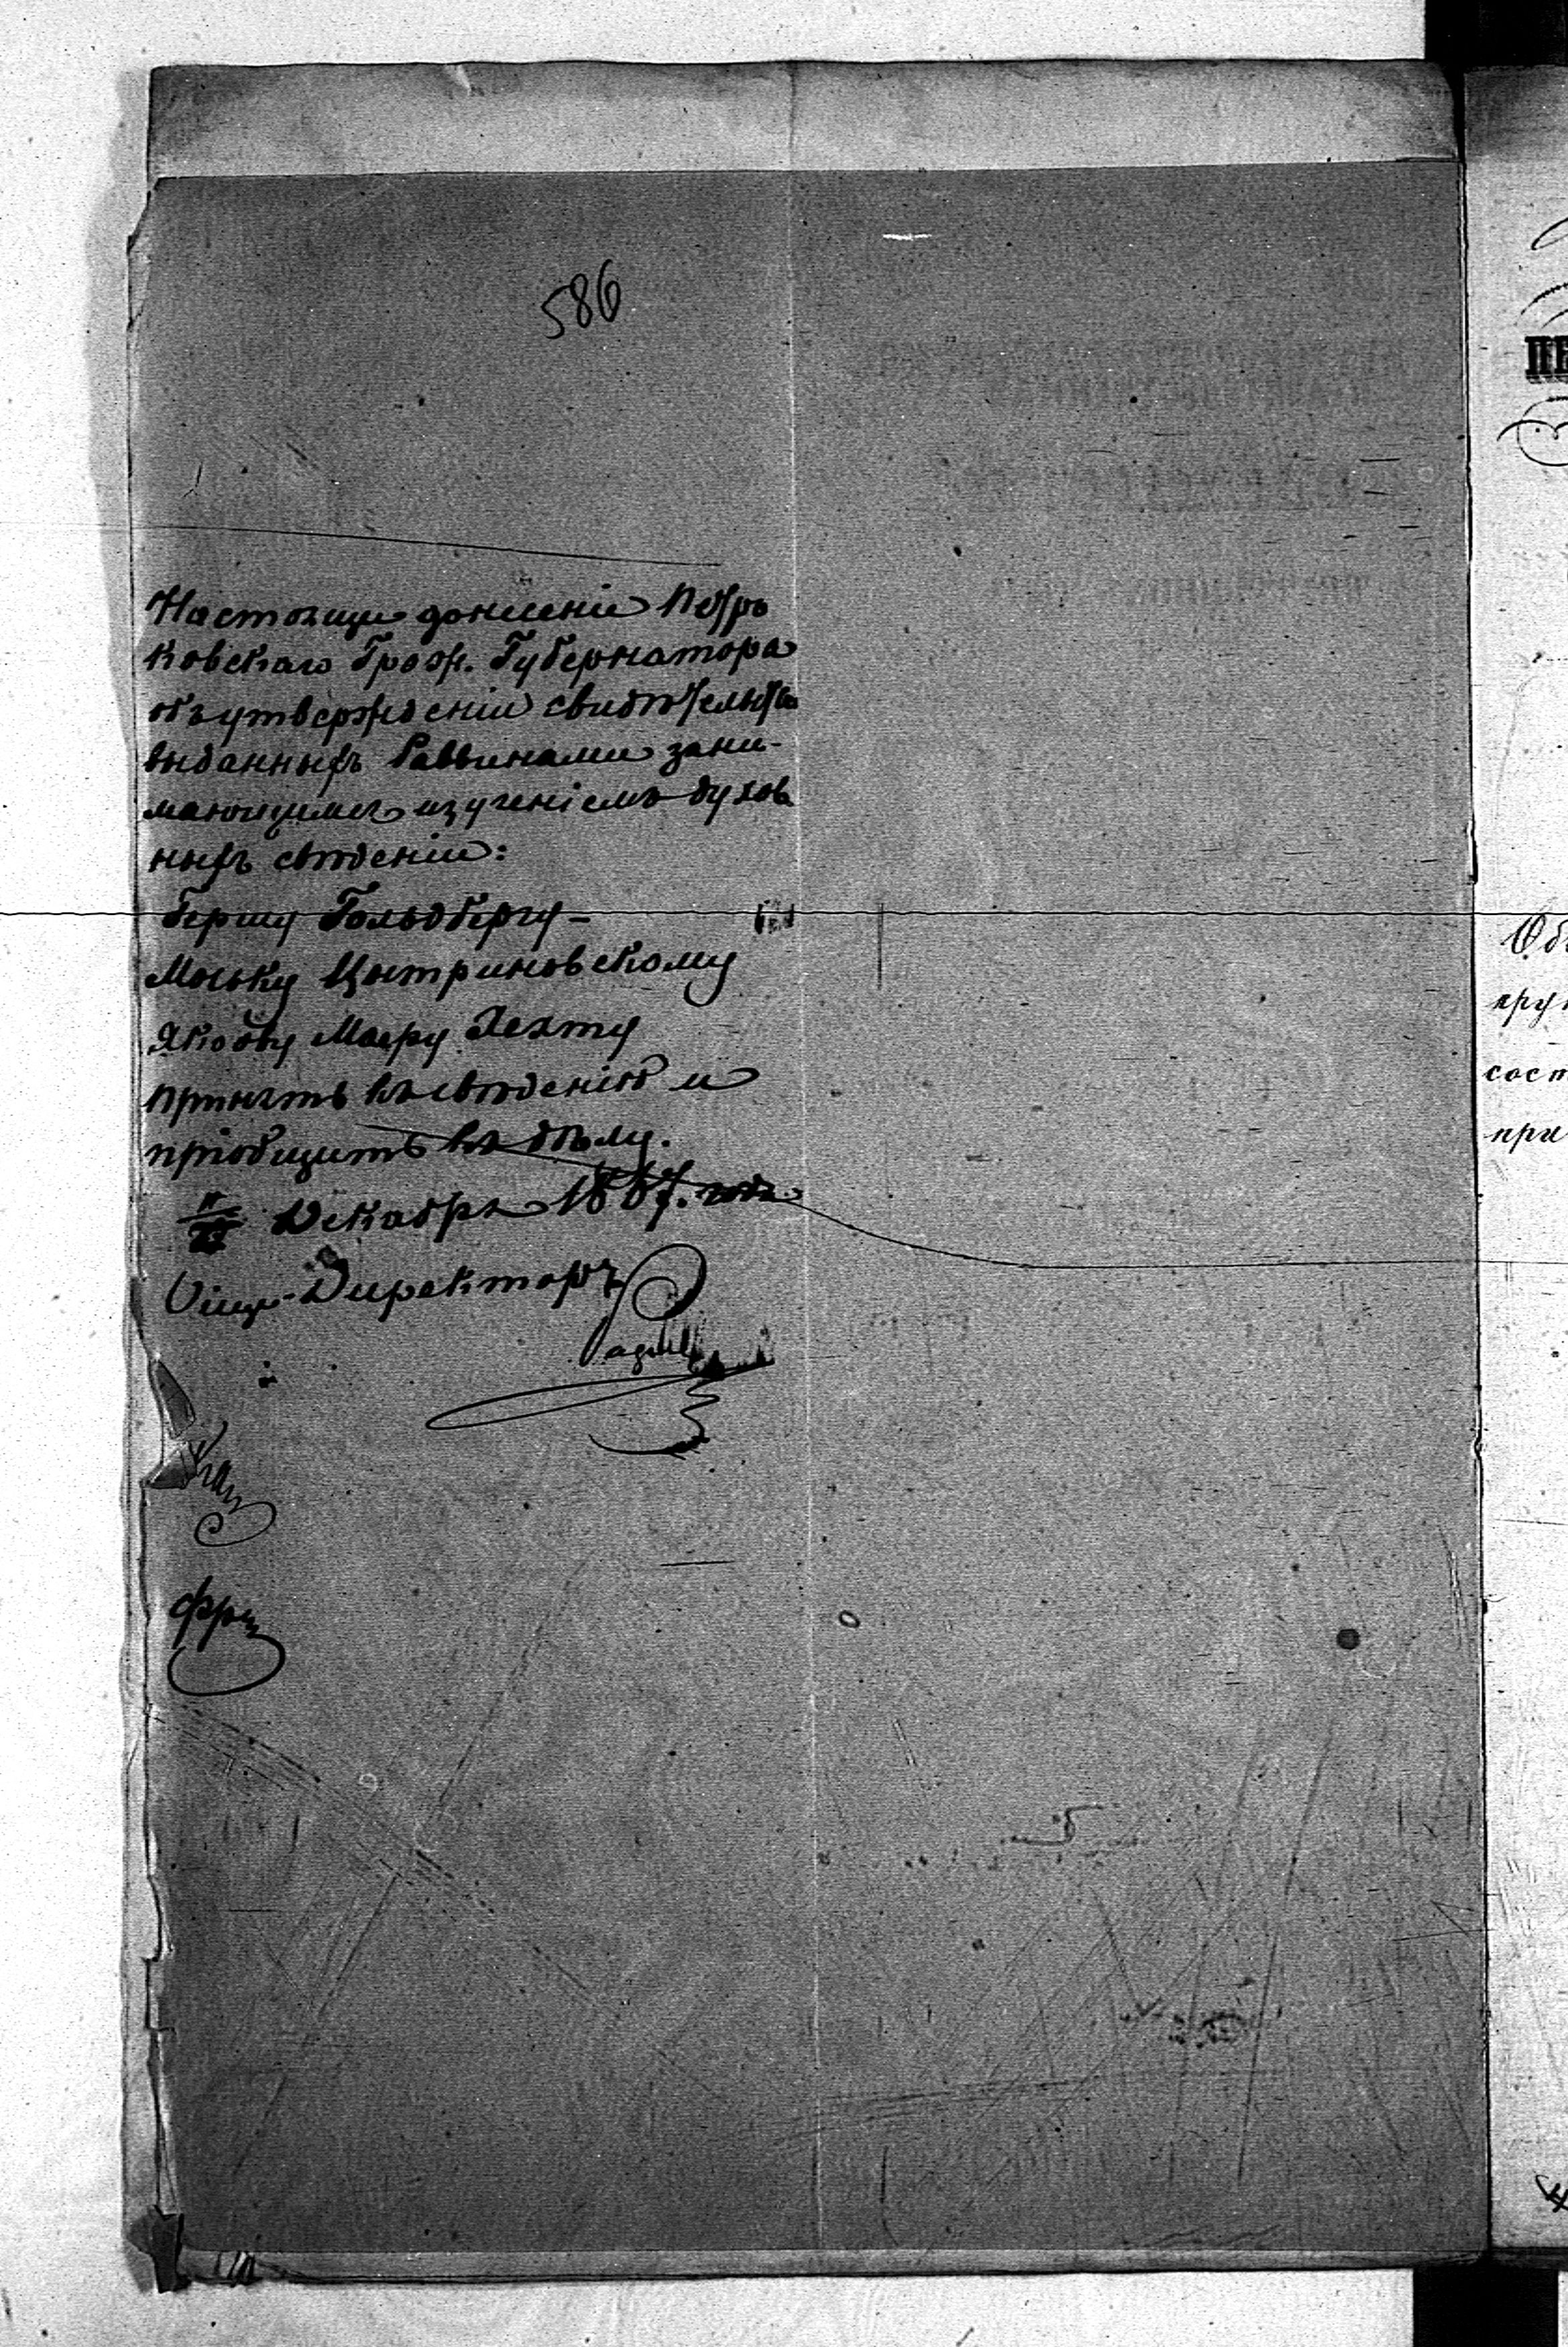 586
Настоящие донесеніе Петро
ковскаго Граж. Губернатора
объ утвержденіи свидѣтельствъ
выданныхъ Раввинами зани-
мающимся изученіемъ духов
ныхъ свѣденій:
Гершу Гольдбергу –
Моську Цытриновскому
Якобу Маеру Лехту
принять къ свѣденію и
пріобщить къ дѣлу.
Декабря 1867. года
Вице-Директоръ
ПР
Об
сост
при